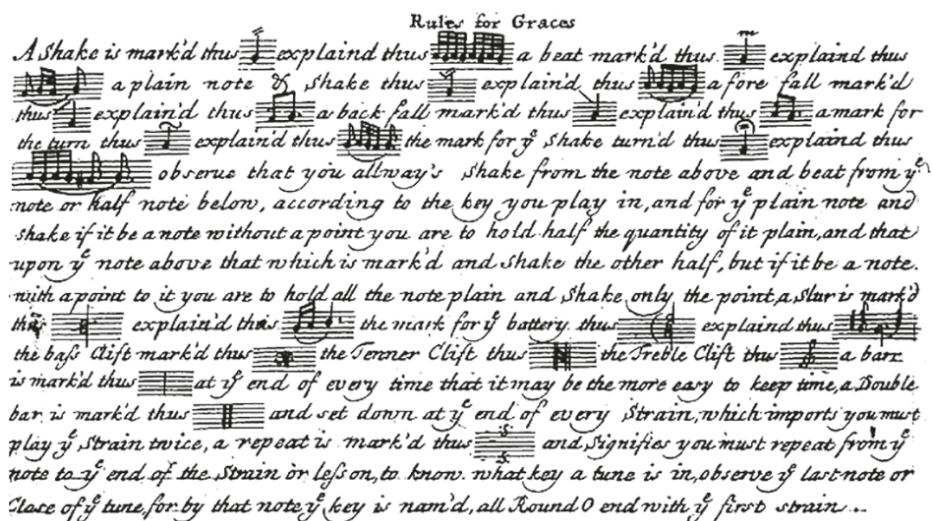 Rules for Graces
A Shake is mark'd thus explaind thus a beat mark'd thus explaind thus
a plain note & Shake thus explain'd thus a fore fall mark'd
thus explain'd thus a back fall mark'd thus explain'd thus a mark for
the turn thus explain'd thus the mark for yͤ Shake turn'd thus explaind thus
observe that you allway's Shake from the note above and beat from yͤ
note or half note below, according to the key you play in, and for yͤ plain note and
shake if it be a note without a point you are to hold half the quantity of it plain, and that
upon yͤ note above that which is mark'd and Shake the other half, but if it be a note
with a point to it you are to hold all the note plain and Shake only the point, a Slur is mark'd
thus explain'd thus the mark for yͤ battery thus explaind thus
the baſs Clift mark'd thus the Tenner Clift thus the Treble Clift thus a barr
is mark'd thus at yͤ end of every time that it may be the more easy to keep time, a Double
bar is mark'd thus and set down at yͤ end of every Strain, which imports you must
play yͤ Strain twice, a repeat is mark'd thus :S: and Signifies you must repeat from yͤ
note to yͤ end of the Strain or leſson, to know what key a tune is in, observe yͤ last note or
Close of yͤ tune, for by that note yͤ key is nam'd, all Round O end with yͤ first strain..